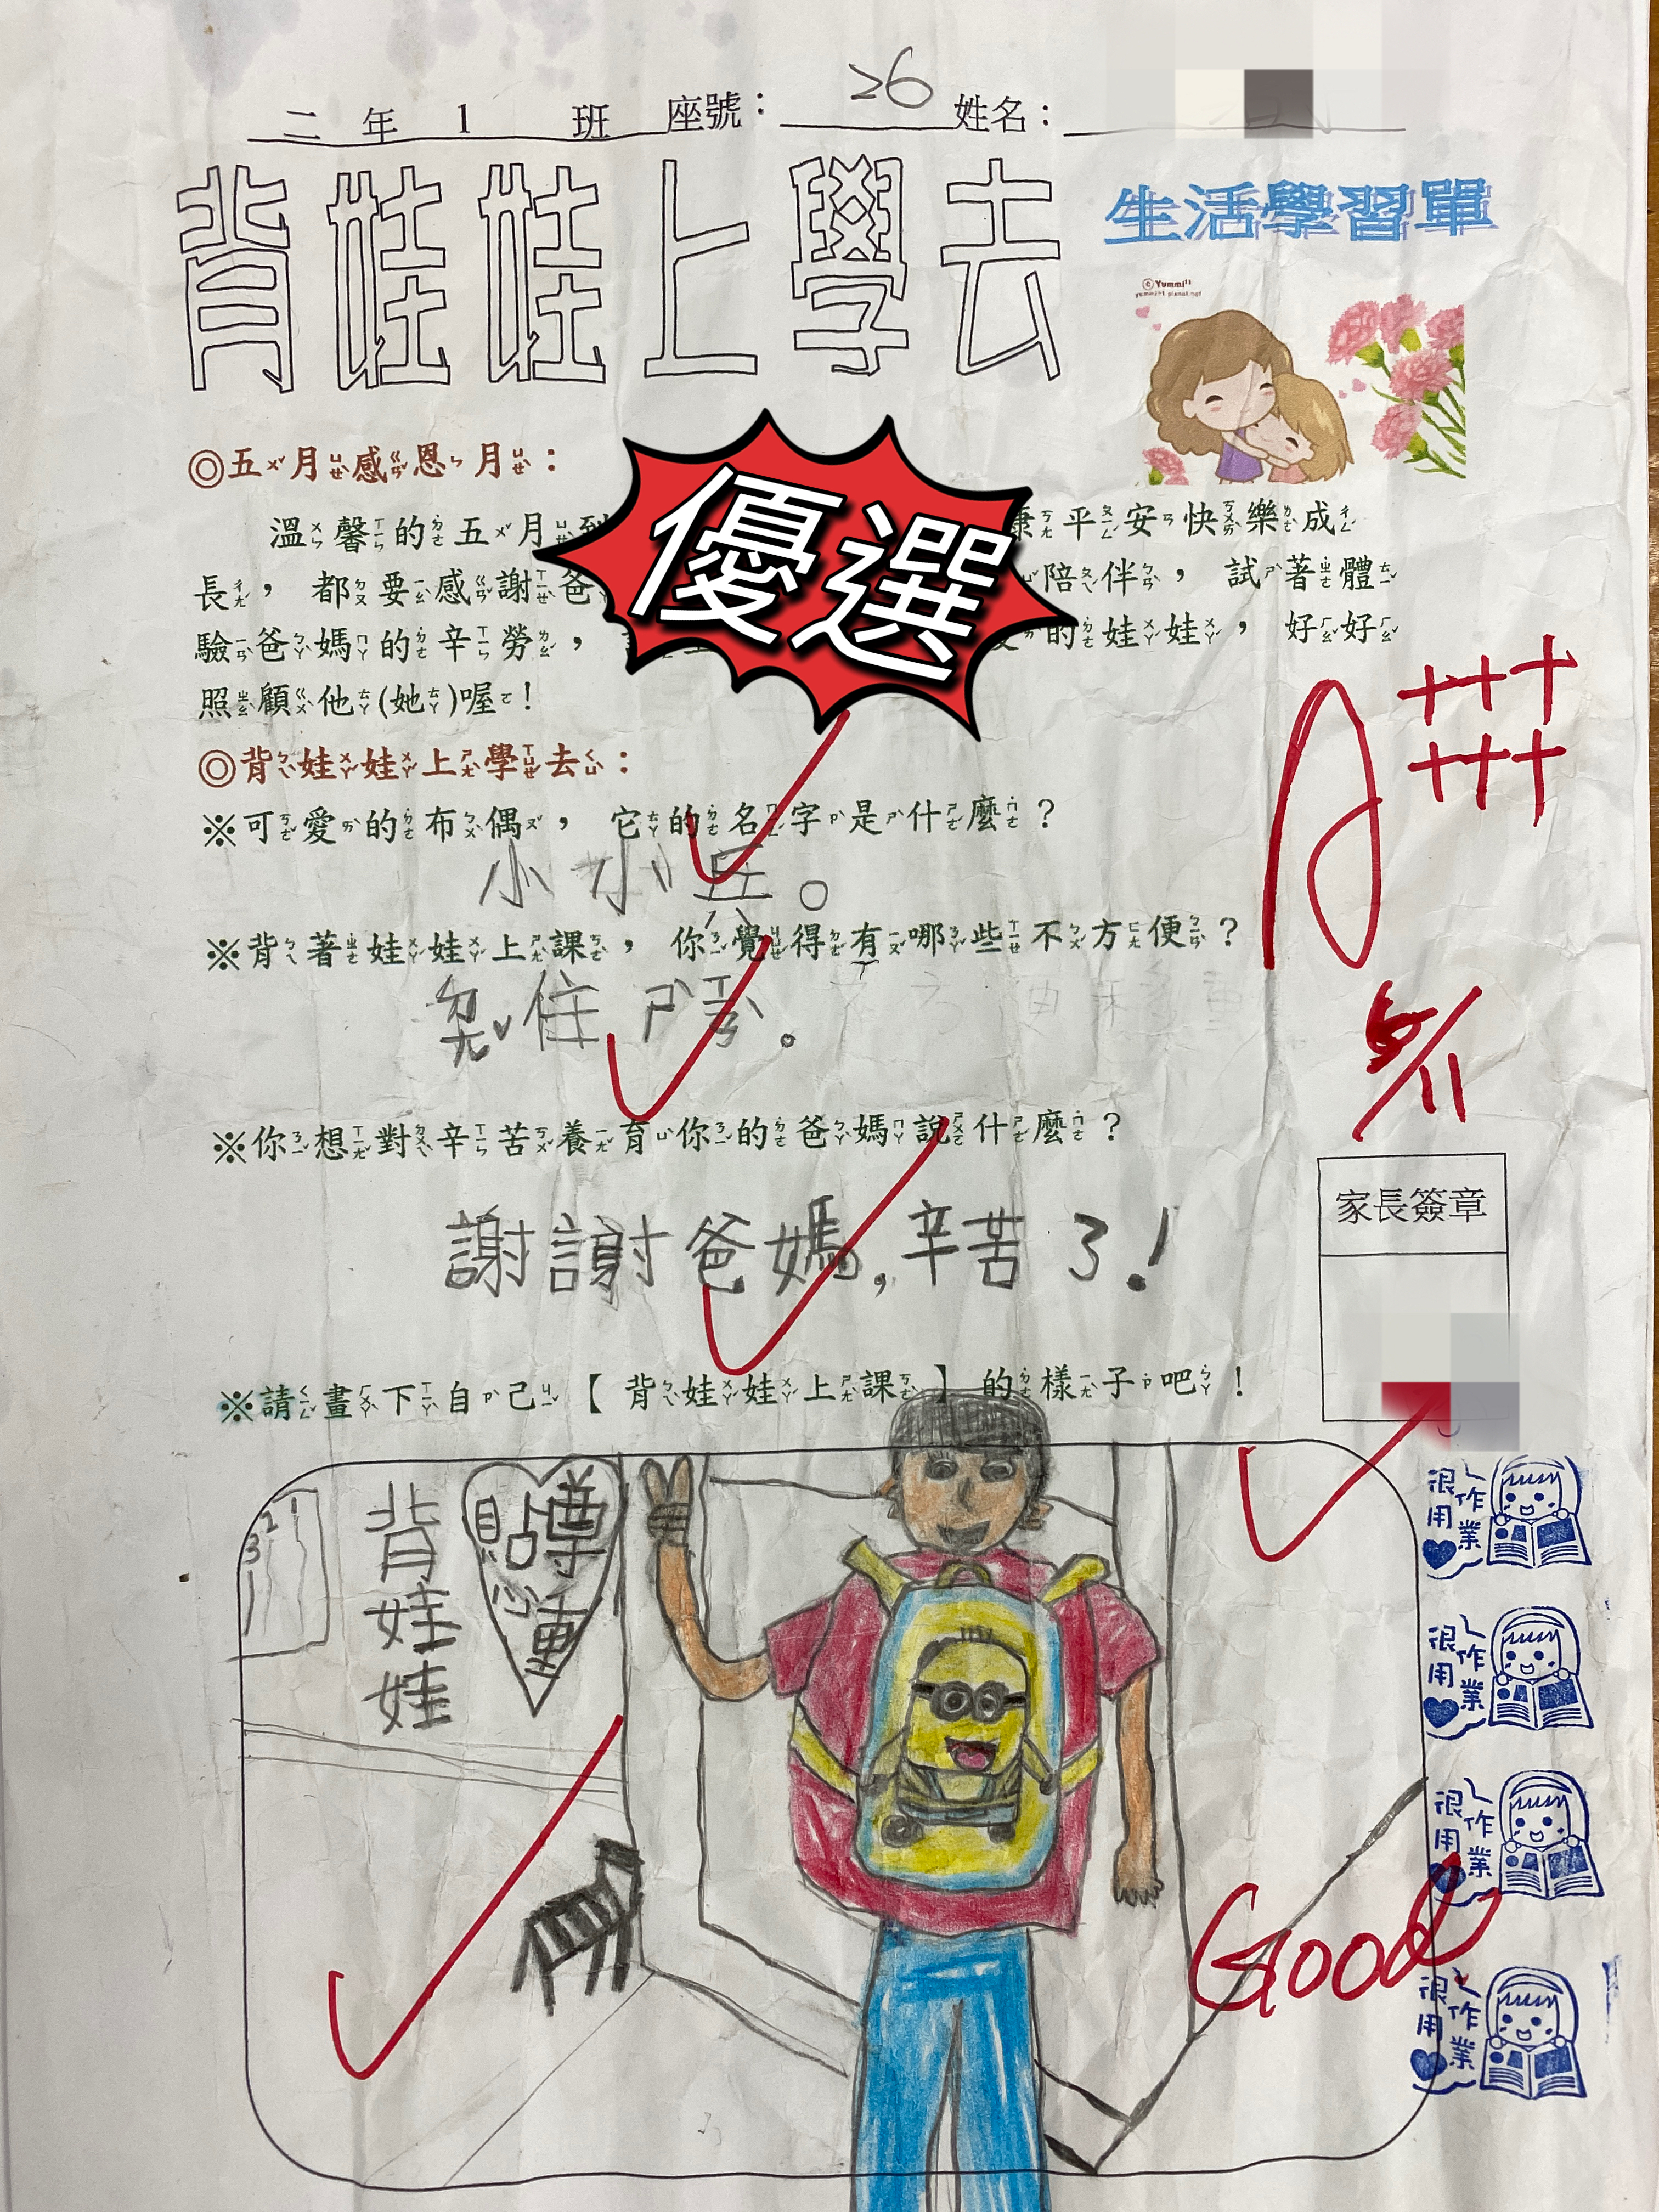 二年1班 座號：26 姓名：
背娃娃上學去
生活學習單
©Yummi
◎五月感恩月：
優選
溫馨的五月到 康平安快樂成
長，都要感謝爸 陪伴，試著體
驗爸媽的辛勞， 的娃娃，好好
照顧他(她)喔！
◎背娃娃上學去：
※可愛的布偶，它的名字是什麼？
小小兵。
A++++++
※背著娃娃上課，你覺得有哪些不方便？
住
5/11
※你想對辛苦養育你的爸媽說什麼？
謝謝爸媽,辛苦了!
家長簽章
※請畫下自己【背娃娃上課】的樣子吧！
背娃娃
貼心
尊重
很用♥
作業
很用♥
作業
很用♥
作業
Good
很用♥
作業